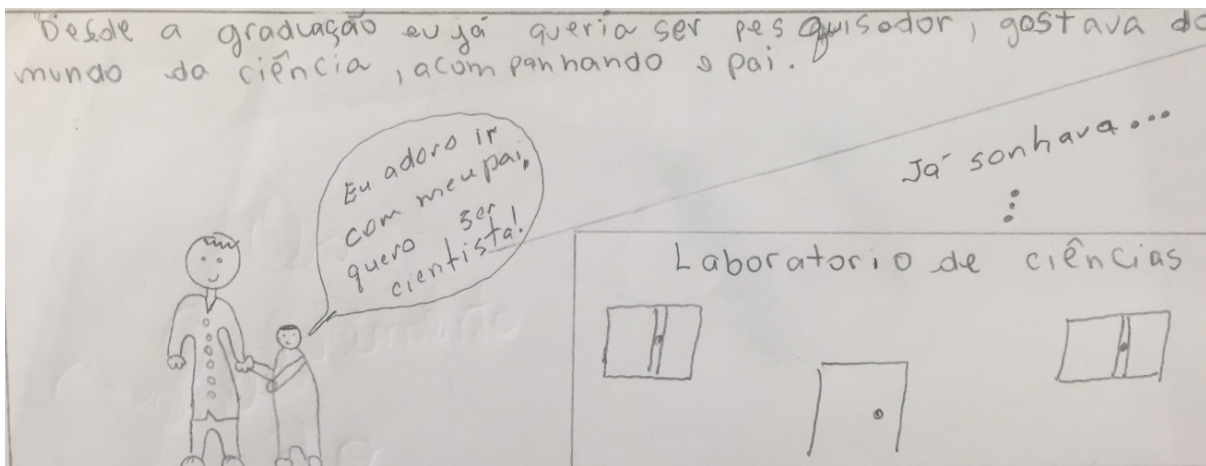 Desde a graduação eu já queria ser pesquisador, gostava do
mundo da ciência, acompanhando o pai.
Eu adoro ir
com meu pai,
quero ser
cientista!
Já sonhava...
Laboratorio de ciências